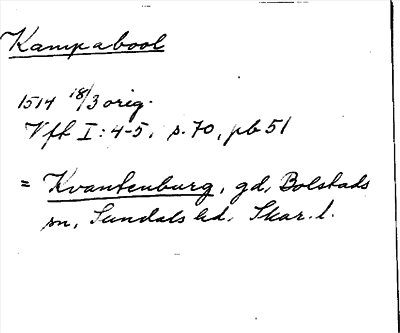 Kampabool
1514 18/3 orig.
Vft I:4-5, s. 70, pb 51
= Kvantenburg, gd, Bolstads
sn, Sundals hd, Skar. l.